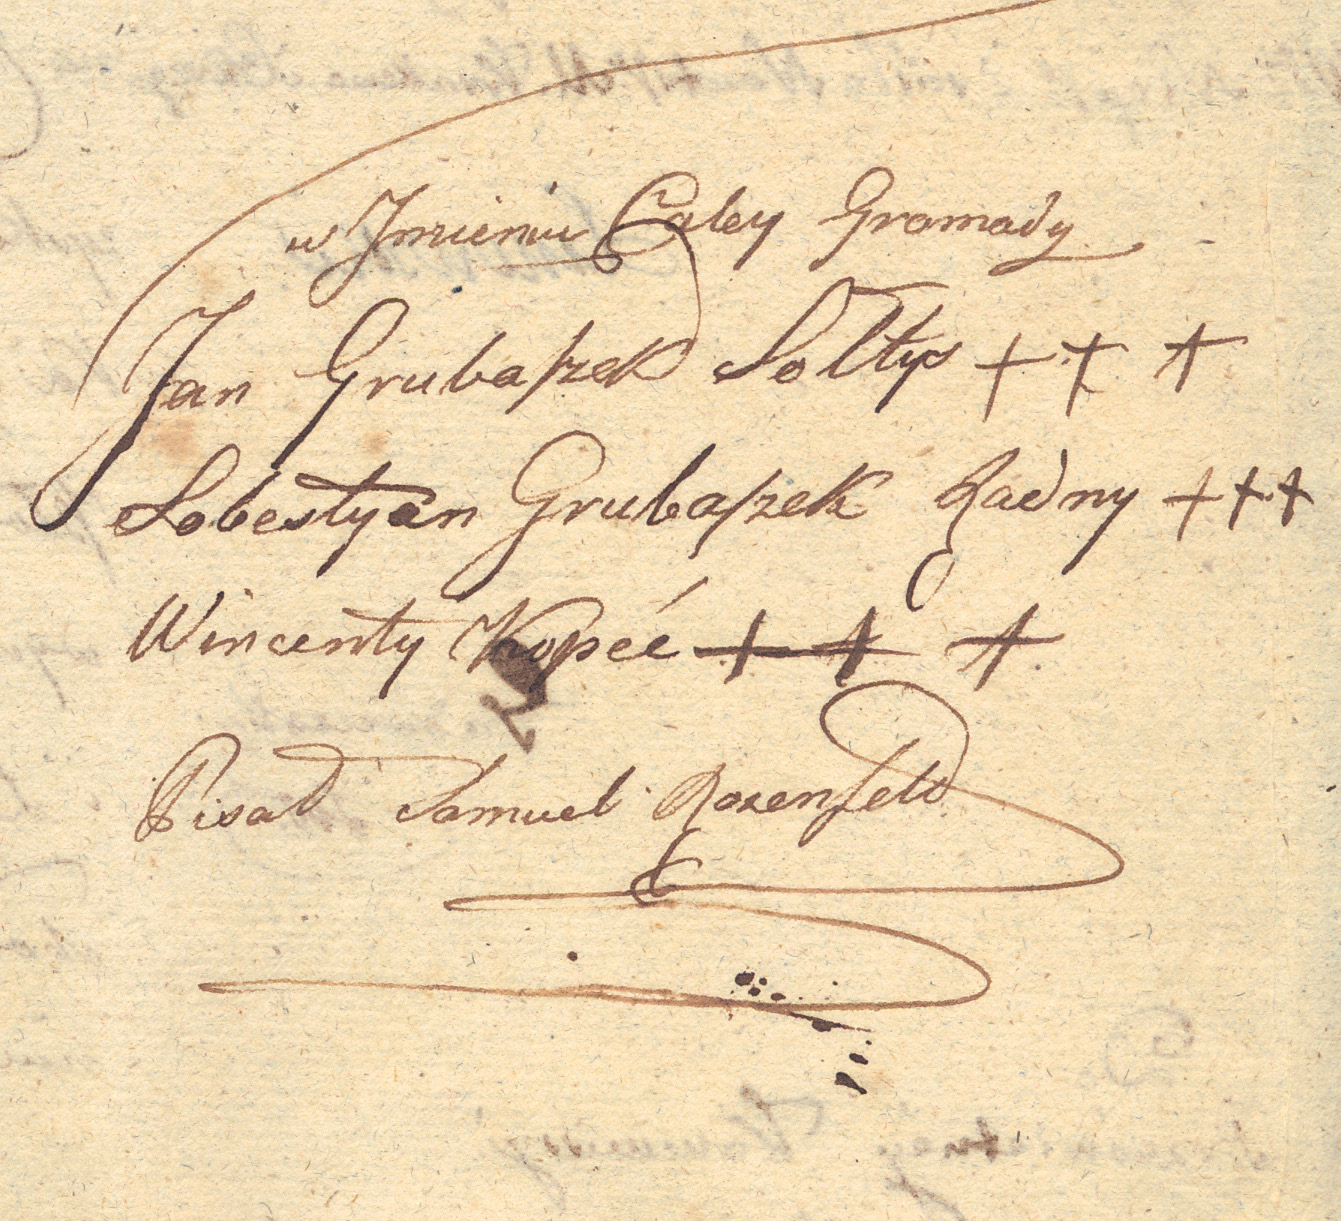 w Jmieniu Całey Gromady
Jan Grubaſzek Sołtys + + +
Sobestyan Grubaſzek Radny + + +
Wincenty Kopeć + + +
Pisał Samuel Rozenfeld